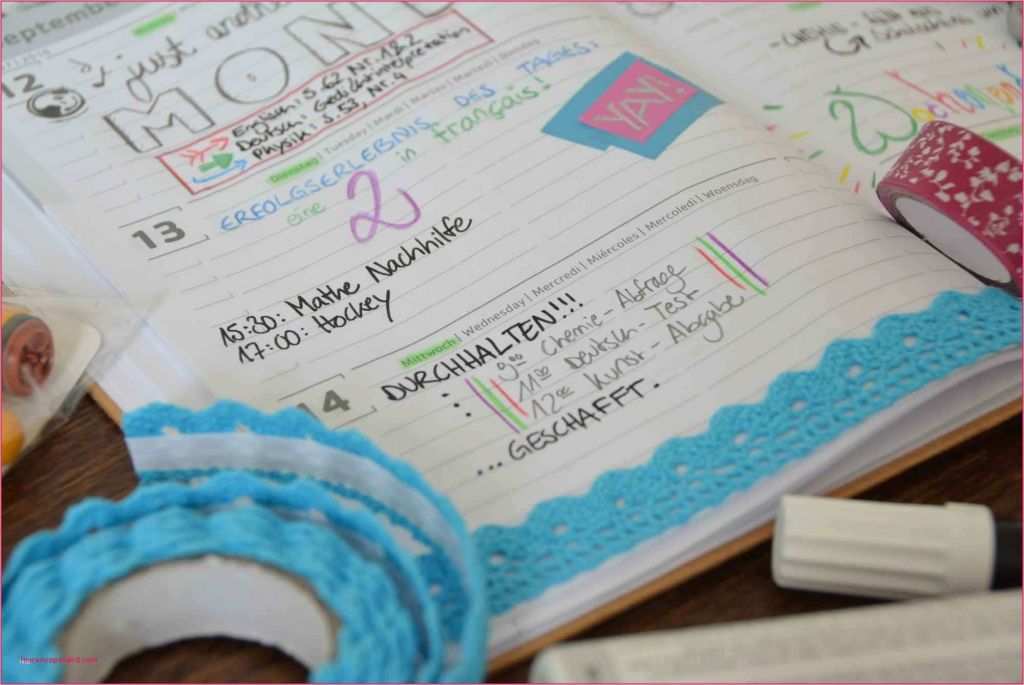 September
12
just
MON
Englisch: S. 62 Nr. 1&2
Deutsch: Gedichtinterpretation
Physik: S. 53, Nr. 4
Dienstag | Tuesday | Mardi | Martes | Martedì | Dinsdag
13
ERFOLGSERLEBNIS DES TAGES:
eine 2 in französisch!
YAY!
15:30: Mathe Nachhilfe
17:00: Hockey
Mittwoch | Wednesday | Mercredi | Miércoles | Mercoledì | Woensdag
14
DURCHHALTEN!!!
: 9:00 Chemie - Abfrage
11:00 Deutsch - Test
12:00 Kunst - Abgabe
... GESCHAFFT.
Wochenend